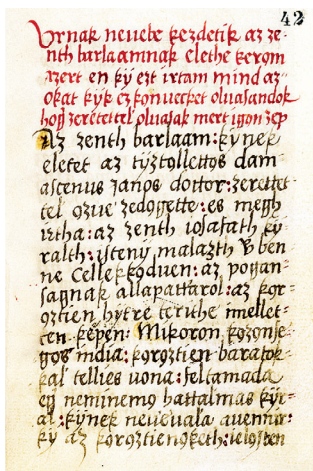 42
Vrnak neuebe kezdetik az ze-
nth barlaamnak elethe kerom
azert en ky ezt irtam mind az-
okat kyk ez konueeket oluasandok
hog zeretettel oluasak mert igon zep
Az zenth barlaam: kynek
eletet az tyztollettos dam-
ascenus Janos dottor: zerettet-
tel ozue zedogette: es megh
irtha: az zenth iosafath ky
ralth: isteny malazth v ben
ne Cellekkoduen: az pogan-
sagnak allapattarol: az kor-
oztien hytre terithe mellet-
ten kepen: Mikoron kozonse-
gos india: koroztien baratok-
kal tellies uona: feltamada
eg neminemo hattalmas kyr-
al: kynek neue uala auennir:
ky az koroztienoketh: ielosten